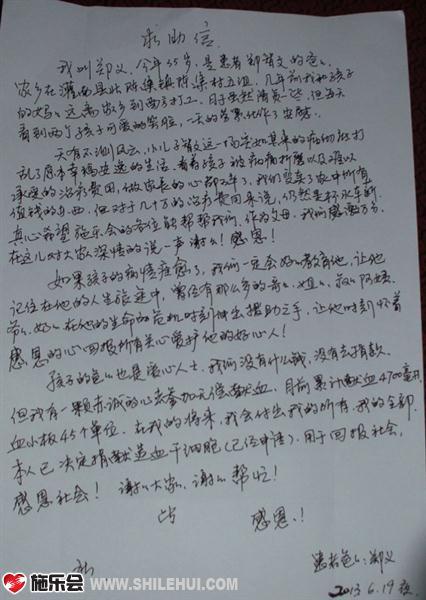 求助信
我叫郑义，今年35岁，是患者郑贺文的爸爸，
家乡在灌南县北陈集镇陈集村五组，几年前我和孩子
的妈妈远离家乡到西方打工，日子虽然清贫一些，但每天
看到两个孩子可爱的笑脸，一天的劳累化作了安慰。
天有不测风云，小儿子贺文这一场突如其来的病彻底打
乱了原本幸福安逸的生活。看着孩子被病痛折磨以及难以
承受的治疗费用，做家长的心都碎了，我们变卖了家中所有
值钱的东西，但对于几十万的治疗费用来说，仍然是杯水车薪。
真心希望施乐会的各位能帮帮我们，作为父母，我们感激万分。
在这儿对大家深情的说一声谢谢！感恩！
如果孩子的病情痊愈了，我们一定会好好教育他，让他
记住在他的人生旅途中，曾经有那么多的哥哥、姐姐、叔叔、阿姨、
爷爷、奶奶在他的生命的危机时刻伸出援助之手，让他时刻怀着
感恩的心回报所有关心爱护他的好心人！
孩子的爸爸也是爱心人士，我们没有什么钱，没有去捐款。
但我有一颗赤诚的心去参加无偿献血，目前累计献血4700毫升，
血小板45个单位。在我的将来，我会付出我的所有，我的全部，
本人已决定捐献造血干细胞（已经申请）。用于回报社会，
感恩社会！谢谢大家，谢谢帮忙！
此
感恩！
患者爸爸：郑义
2013.6.19夜
施乐会 WWW.SHILEHUI.COM